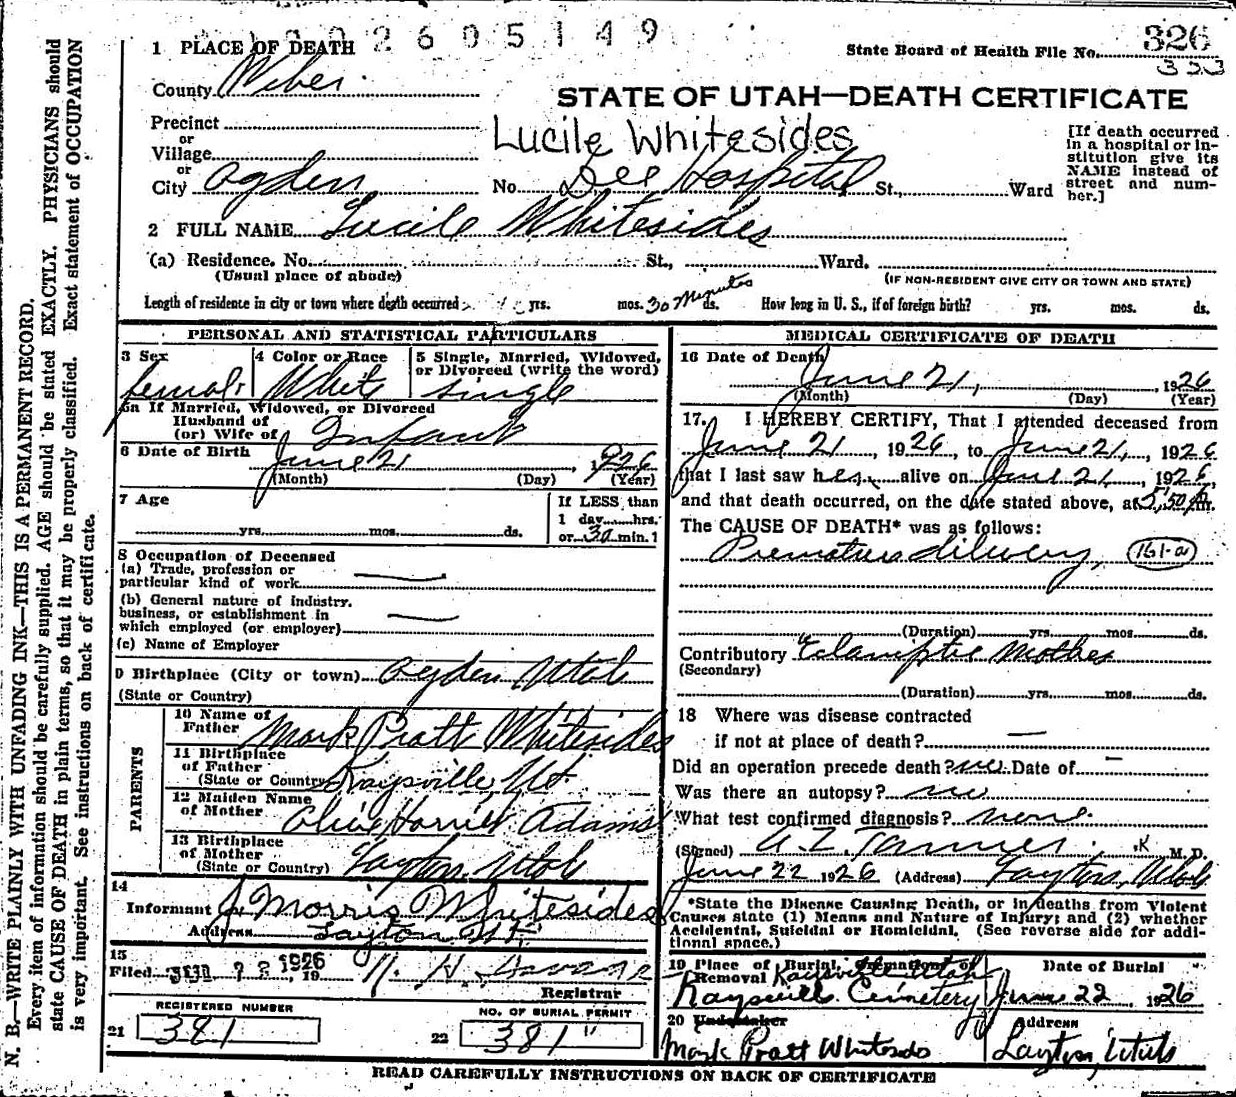 2 6 0 5 1 4 9
1 PLACE OF DEATH
State Board of Health File No. 326
333
County Weber
STATE OF UTAH—DEATH CERTIFICATE
Precinct
or
Village
or
City Ogden No. Dee Hospital St., Ward
Lucile Whitesides
[If death occurred in a hospital or in-
stitution give its
NAME instead of
street and num-
ber.]
2 FULL NAME Lucile Whitesides
(a) Residence. No. St., Ward.
(Usual place of abode) (IF NON-RESIDENT GIVE CITY OR TOWN AND STATE)
Length of residence in city or town where death occurred yrs. mos. 30 Minutes ds. How long in U. S., if of foreign birth? yrs. mos. ds.
PERSONAL AND STATISTICAL PARTICULARS
3 Sex
female
4 Color or Race
White
5 Single, Married, Widowed,
or Divorced (write the word)
single
5a If Married, Widowed, or Divorced
Husband of
(or) Wife of Infant
6 Date of Birth June 21, 1926
(Month) (Day) (Year)
7 Age
yrs. mos. ds.
If LESS than
1 day hrs.
or 30 min.
8 Occupation of Deceased
(a) Trade, profession or
particular kind of work
(b) General nature of industry,
business, or establishment in
which employed (or employer)
(c) Name of Employer
9 Birthplace (City or town) Ogden Utah
(State or Country)
PARENTS
10 Name of
Father Mark Pratt Whitesides
11 Birthplace
of Father
(State or Country) Kaysville, Ut.
12 Maiden Name
of Mother Olive Harriet Adams
13 Birthplace
of Mother
(State or Country) Layton, Utah
14
Informant J. Morris Whitesides
Address Layton Ut.
15
Filed JUN 22 1926 19
Registrar
REGISTERED NUMBER
21 381
NO. OF BURIAL PERMIT
22 381
MEDICAL CERTIFICATE OF DEATH
16 Date of Death
June 21, 1926
(Month) (Day) (Year)
17. I HEREBY CERTIFY, That I attended deceased from
June 21, 1926, to June 21, 1926
that I last saw her alive on June 21, 1926,
and that death occurred, on the date stated above, at 5:50 P.m.
The CAUSE OF DEATH* was as follows:
Premature delivery, 161-a
(Duration) yrs. mos. ds.
Contributory Eclamptic Mother
(Secondary)
(Duration) yrs. mos. ds.
18 Where was disease contracted
if not at place of death? —
Did an operation precede death? no Date of —
Was there an autopsy? no
What test confirmed diagnosis? none.
(Signed) A. Z. Tanner. M. D.
June 22 1926 (Address) Layton, Utah
*State the Disease Causing Death, or in deaths from Violent
Causes state (1) Means and Nature of Injury; and (2) whether
Accidental, Suicidal or Homicidal. (See reverse side for addi-
tional space.)
19 Place of Burial, Cremation or
Removal Kaysville Utah
Kaysville Cemetery
Date of Burial
June 22, 1926
20 Undertaker
Mark Pratt Whitesides
Address
Layton, Utah
READ CAREFULLY INSTRUCTIONS ON BACK OF CERTIFICATE
N. B.—WRITE PLAINLY WITH UNFADING INK—THIS IS A PERMANENT RECORD.
Every item of information should be carefully supplied. AGE should be stated EXACTLY. PHYSICIANS should
state CAUSE OF DEATH in plain terms, so that it may be properly classified. Exact statement of OCCUPATION
is very important. See instructions on back of certificate.